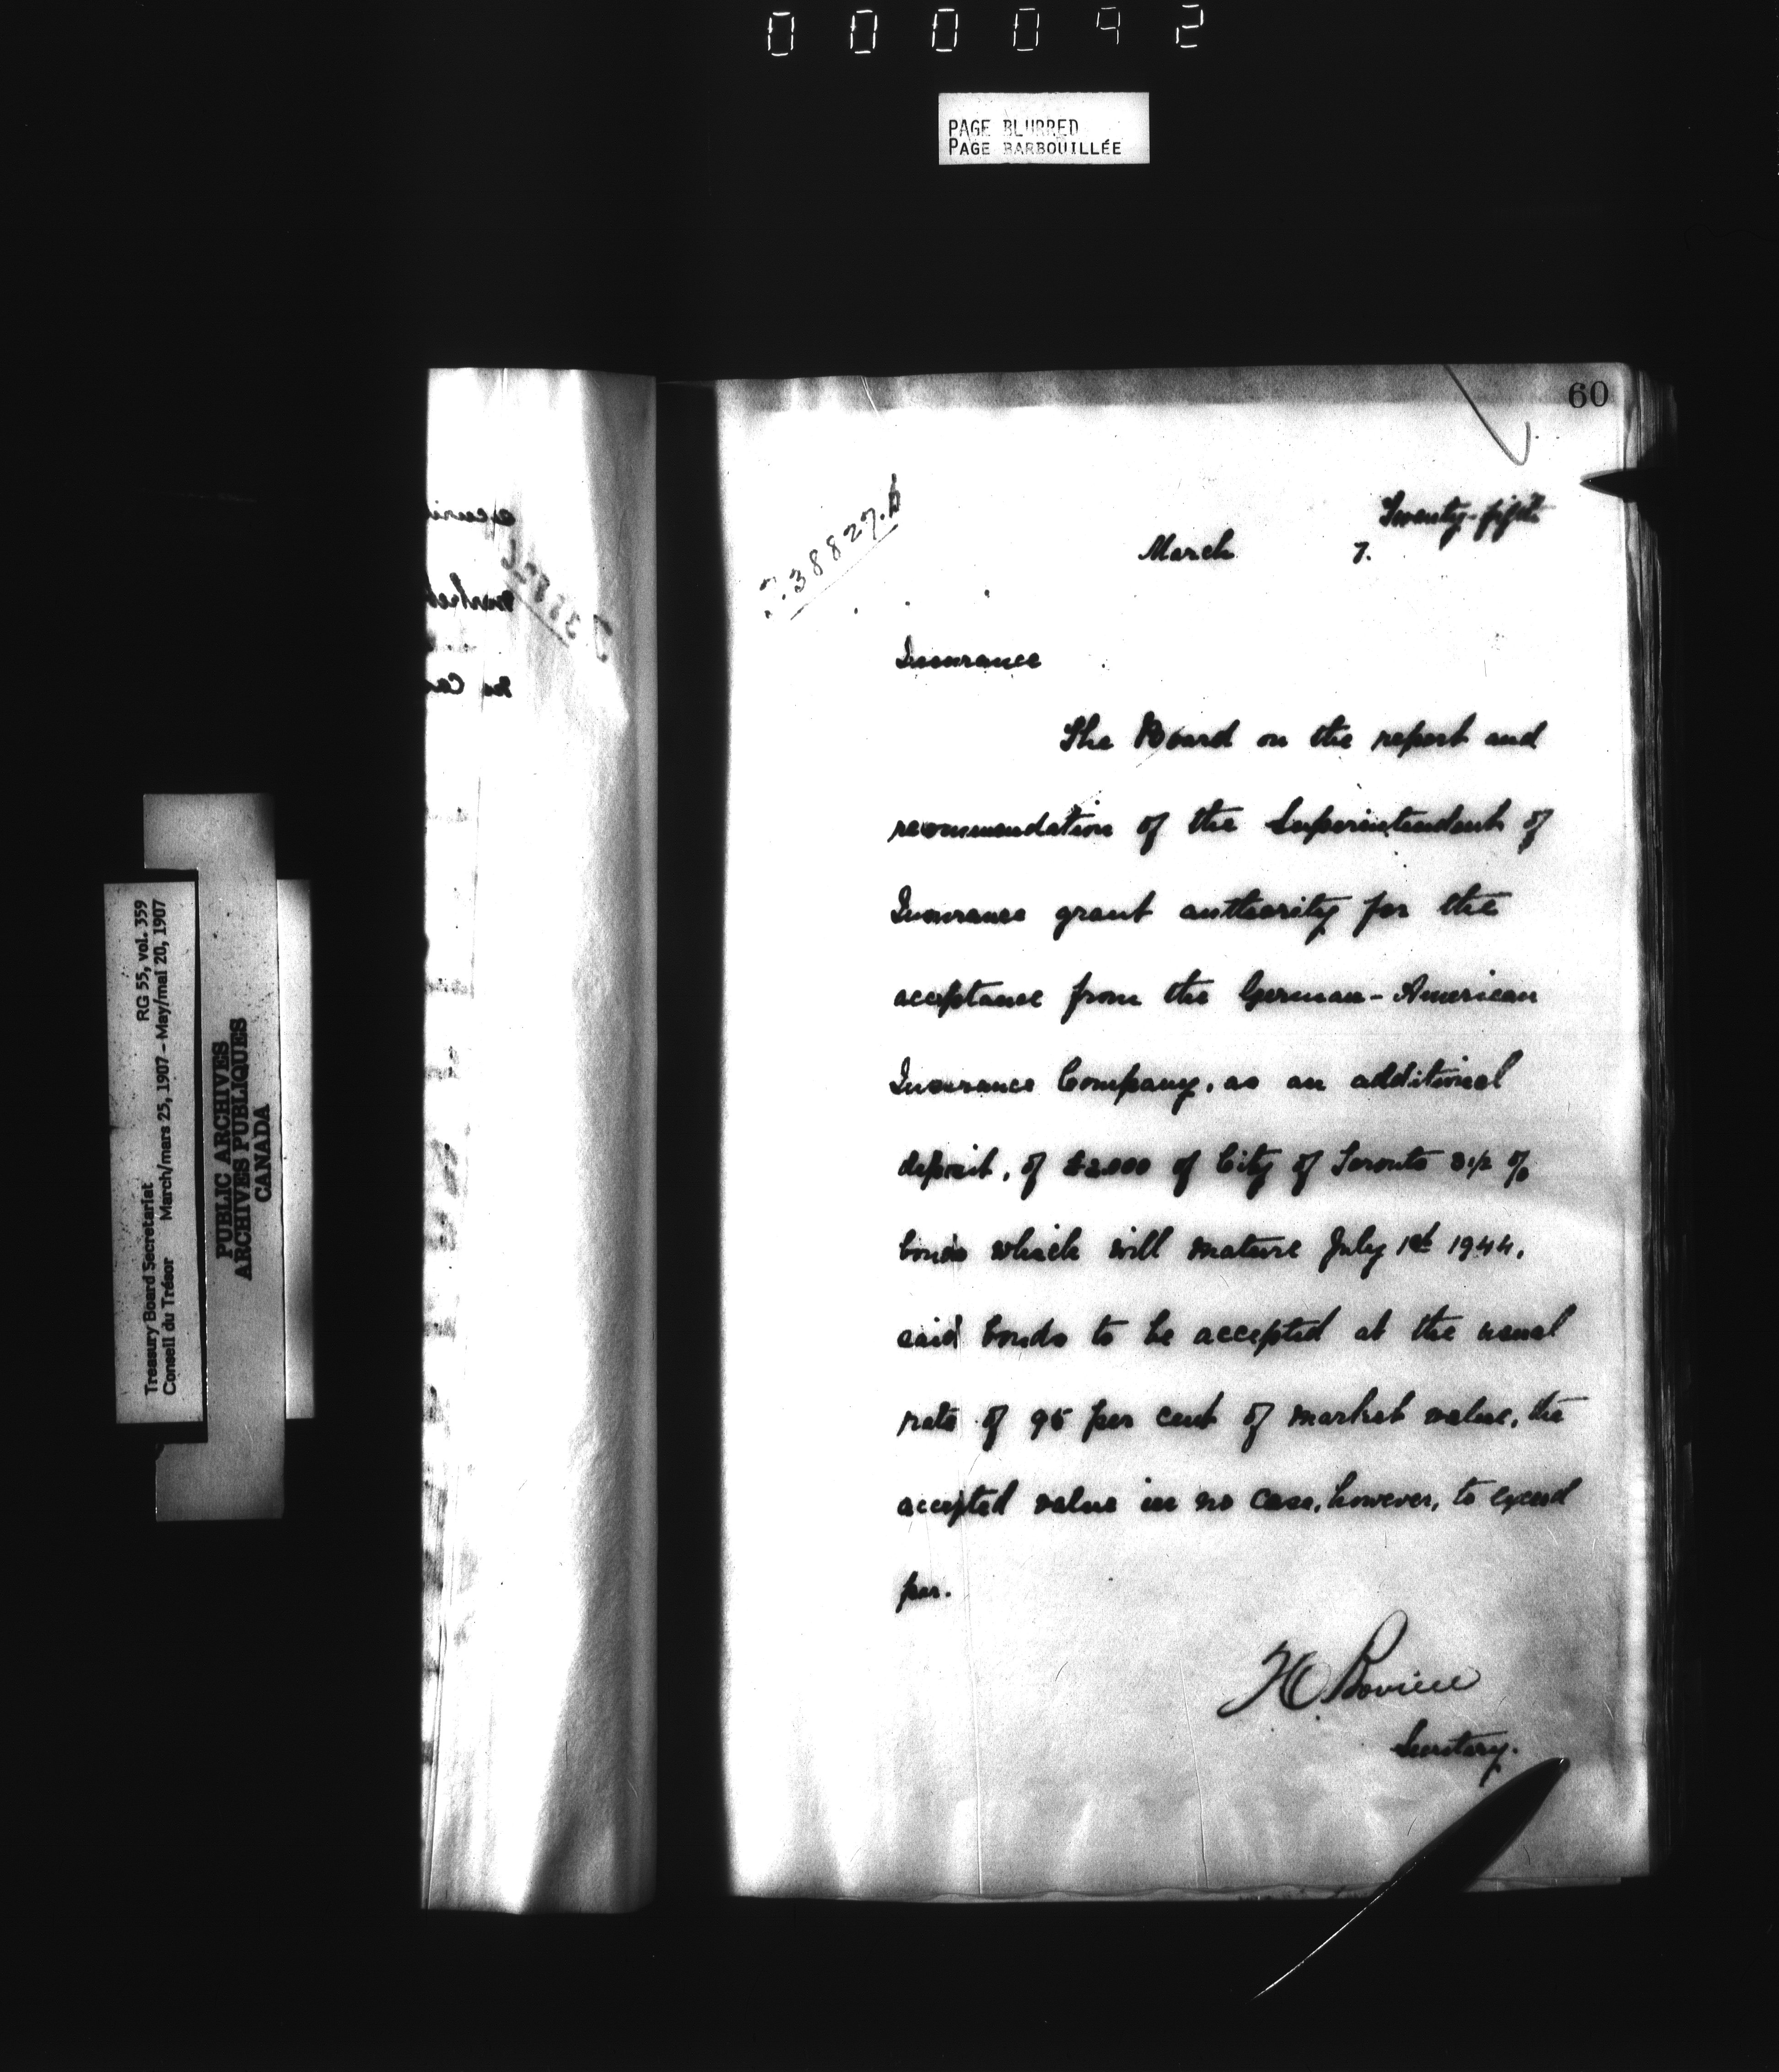 000092
PAGE BLURRED
PAGE BARBOUILLÉE
60
38827.
Twenty-fifth
March 7.
Insurance
The Board on the report and
recommendation of the Superintendent of
Insurance grant authority for the
acceptance from the German-American
Insurance Company, as an additional
deposit, of of City of Toronto 3 1/2 %
bonds which will mature July 1st 1944,
said bonds to be accepted at the usual
rate of 95 per cent of market value, the
accepted value in no case, however, to exceed
par.
Secretary.
Treasury Board Secretariat RG 55, vol. 359
Conseil du Trésor March/mars 25, 1907 – May/mai 20, 1907
PUBLIC ARCHIVES
ARCHIVES PUBLIQUES
CANADA